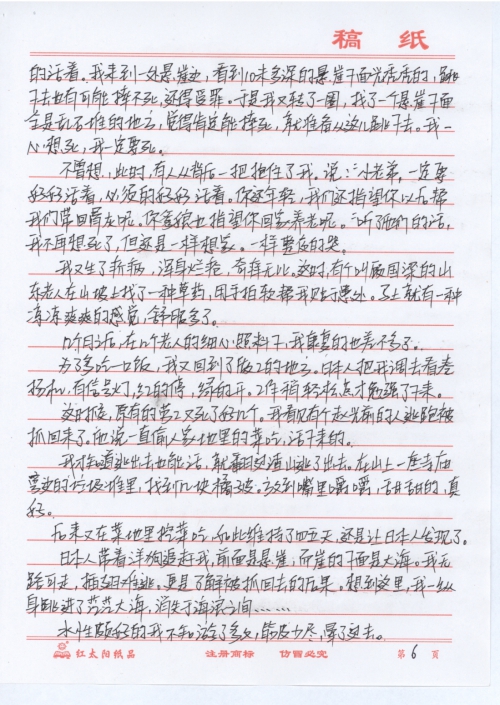 稿 纸
的活着。我来到一处悬崖边，看到10米多深的悬崖下面光虎虎的，跳
下去也有可能摔不死，还得受罪。于是我又转了一圈，找了个悬崖下面
全是乱石堆的地方，觉得肯定能摔死，就准备从这儿跳下去。我一
心想死，我一定要死。
不曾想，此时，有人从背后一把抱住了我。说：“小老弟，一定要
好好活着，必须的好好活着。你还年轻，我们还指望你以后帮
我们带回骨灰呢。你爹娘也指望你回去养老呢。”听了他们的话，
我不再想死了，但还是一样想家。一样整夜的哭。
我又生了疥疮，浑身烂疮，奇痒无比。这时，有个叫 国深的山
东老人在山坡上找了一种草药，用手拍软帮我贴患处。马上就有一种
凉凉爽爽的感觉，舒服多了。
几个月后，在几个老人的细心照料下，我真真的也差不多了。
为了多吃一口饭，我又回到了 的地方。日本人把我调去看卷
扬机，有信号灯，红的停，绿的开。工作稍轻松点才勉强了下来。
这时候，原有的劳工又死了好几个。我看见有个赵兴前的人逃跑被
抓回来了。他说一直偷人家地里的菜吃，活下来的。
我才知道逃出去也能活，就翻过渣山逃了出去。在山上一座寺庙
旁边的垃圾堆里，找到几块橘子皮。放到嘴里嚼嚼，甜甜的，真
好。
后来又在菜地里挖菜吃，如此维持了四五天，还是让日本人发现了。
日本人带着洋狗追赶我，前面是悬崖，而崖的下面是大海。我无
路可走，插翅难逃。更是了解被抓回去的后果。想到这里，我一纵
身跳进了茫茫大海，消失于海浪之间……
水性极好的我不知游了多久，筋疲力尽，晕了过去。
红太阳纸品 注册商标 仿冒必究 第 6 页